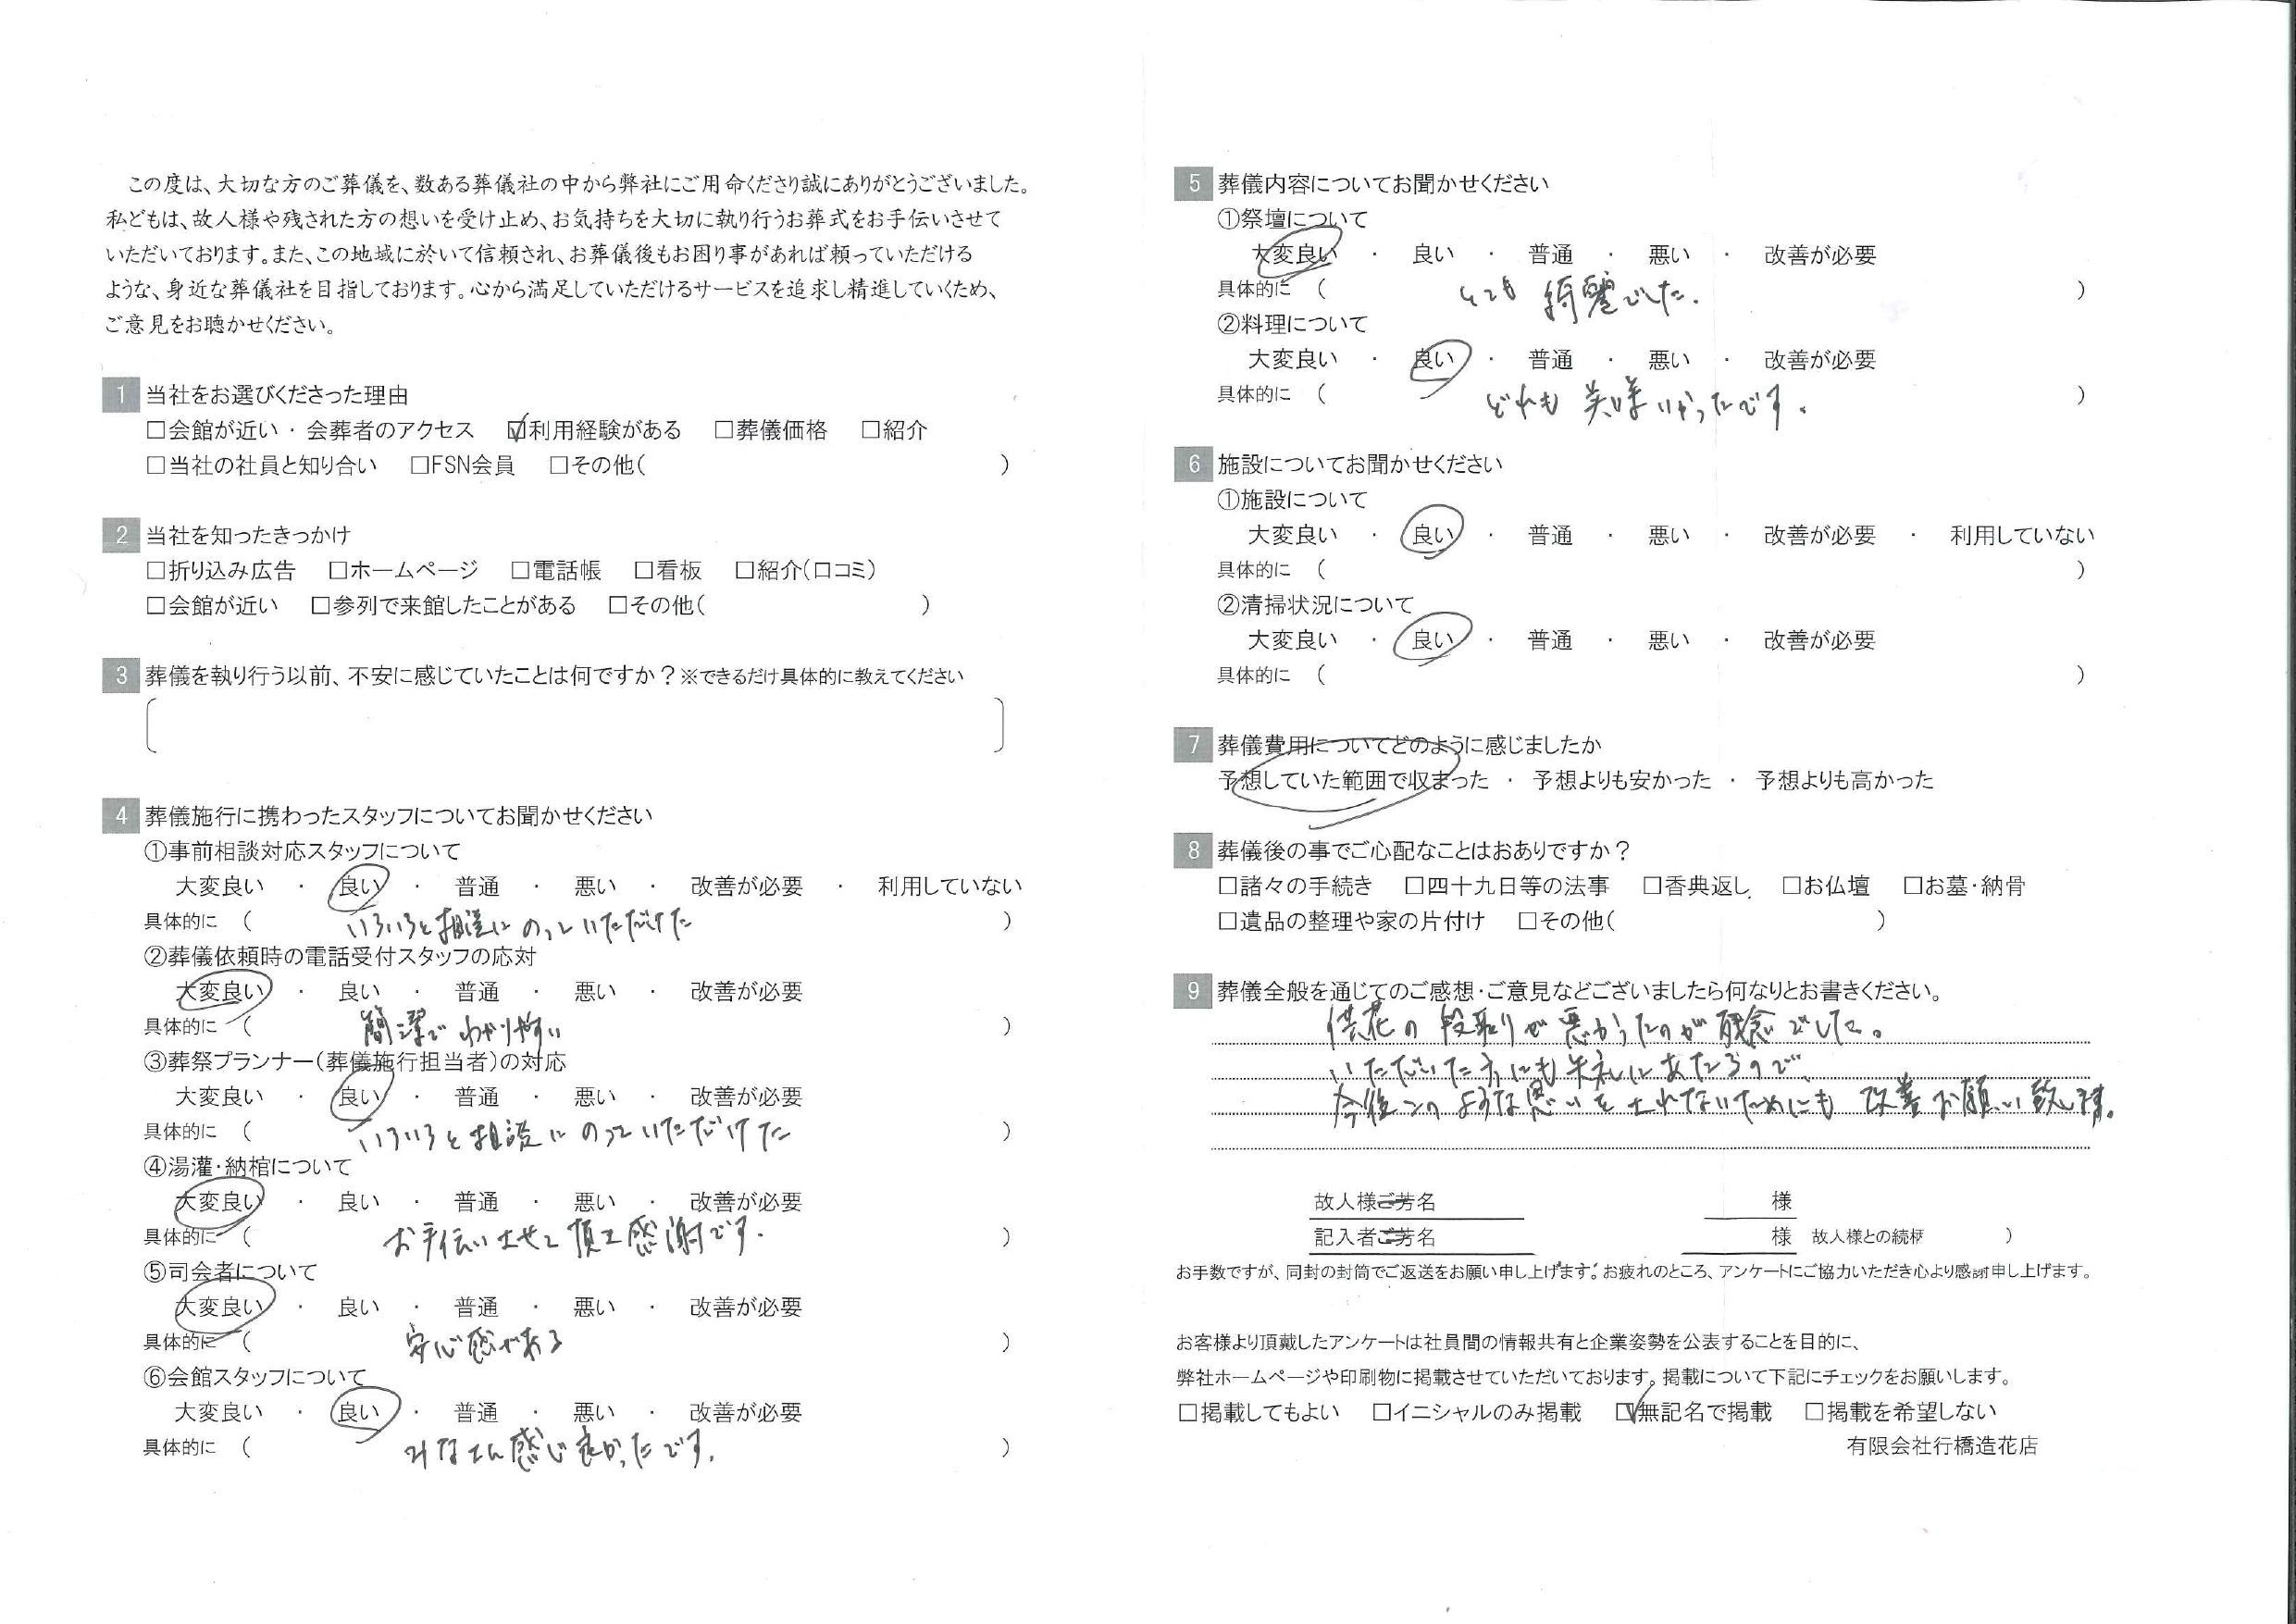 この度は、大切な方のご葬儀を、数ある葬儀社の中から弊社にご用命くださり誠にありがとうございました。
私どもは、故人様や残された方の想いを受け止め、お気持ちを大切に執り行うお葬式をお手伝いさせて
いただいております。また、この地域に於いて信頼され、お葬儀後もお困り事があれば頼っていただける
ような、身近な葬儀社を目指しております。心から満足していただけるサービスを追求し精進していくため、
ご意見をお聴かせください。
1 当社をお選びくださった理由
□会館が近い・会葬者のアクセス ☑利用経験がある □葬儀価格 □紹介
□当社の社員と知り合い □FSN会員 □その他( )
2 当社を知ったきっかけ
□折り込み広告 □ホームページ □電話帳 □看板 □紹介(口コミ)
□会館が近い □参列で来館したことがある □その他( )
3 葬儀を執り行う以前、不安に感じていたことは何ですか？※できるだけ具体的に教えてください
4 葬儀施行に携わったスタッフについてお聞かせください
①事前相談対応スタッフについて
大変良い ・ 良い ・ 普通 ・ 悪い ・ 改善が必要 ・ 利用していない
具体的に ( いろいろと相談にのっていただけた )
②葬儀依頼時の電話受付スタッフの応対
大変良い ・ 良い ・ 普通 ・ 悪い ・ 改善が必要
具体的に ( 簡潔でわかり易い )
③葬祭プランナー(葬儀施行担当者)の対応
大変良い ・ 良い ・ 普通 ・ 悪い ・ 改善が必要
具体的に ( いろいろと相談にのっていただけた )
④湯灌・納棺について
大変良い ・ 良い ・ 普通 ・ 悪い ・ 改善が必要
具体的に ( お手伝いさせて頂き感謝です. )
⑤司会者について
大変良い ・ 良い ・ 普通 ・ 悪い ・ 改善が必要
具体的に ( 安心感がある )
⑥会館スタッフについて
大変良い ・ 良い ・ 普通 ・ 悪い ・ 改善が必要
具体的に ( みなさん感じ良かったです. )
5 葬儀内容についてお聞かせください
①祭壇について
大変良い ・ 良い ・ 普通 ・ 悪い ・ 改善が必要
具体的に ( とても綺麗でした. )
②料理について
大変良い ・ 良い ・ 普通 ・ 悪い ・ 改善が必要
具体的に ( どれも美味しかったです。 )
6 施設についてお聞かせください
①施設について
大変良い ・ 良い ・ 普通 ・ 悪い ・ 改善が必要 ・ 利用していない
具体的に ( )
②清掃状況について
大変良い ・ 良い ・ 普通 ・ 悪い ・ 改善が必要
具体的に ( )
7 葬儀費用についてどのように感じましたか
予想していた範囲で収まった ・ 予想よりも安かった ・ 予想よりも高かった
8 葬儀後の事でご心配なことはおありですか？
□諸々の手続き □四十九日等の法事 □香典返し □お仏壇 □お墓・納骨
□遺品の整理や家の片付け □その他( )
9 葬儀全般を通じてのご感想・ご意見などございましたら何なりとお書きください。
供花の段取りが悪かったのが残念でした。
いただいた方にも失礼にあたるので、
今後このような思いをされないためにも改善お願い致します。
故人様ご芳名 様
記入者ご芳名 様 故人様との続柄 )
お手数ですが、同封の封筒でご返送をお願い申し上げます。お疲れのところ、アンケートにご協力いただき心より感謝申し上げます。
お客様より頂戴したアンケートは社員間の情報共有と企業姿勢を公表することを目的に、
弊社ホームページや印刷物に掲載させていただいております。掲載について下記にチェックをお願いします。
□掲載してもよい □イニシャルのみ掲載 ☑無記名で掲載 □掲載を希望しない
有限会社行橋造花店